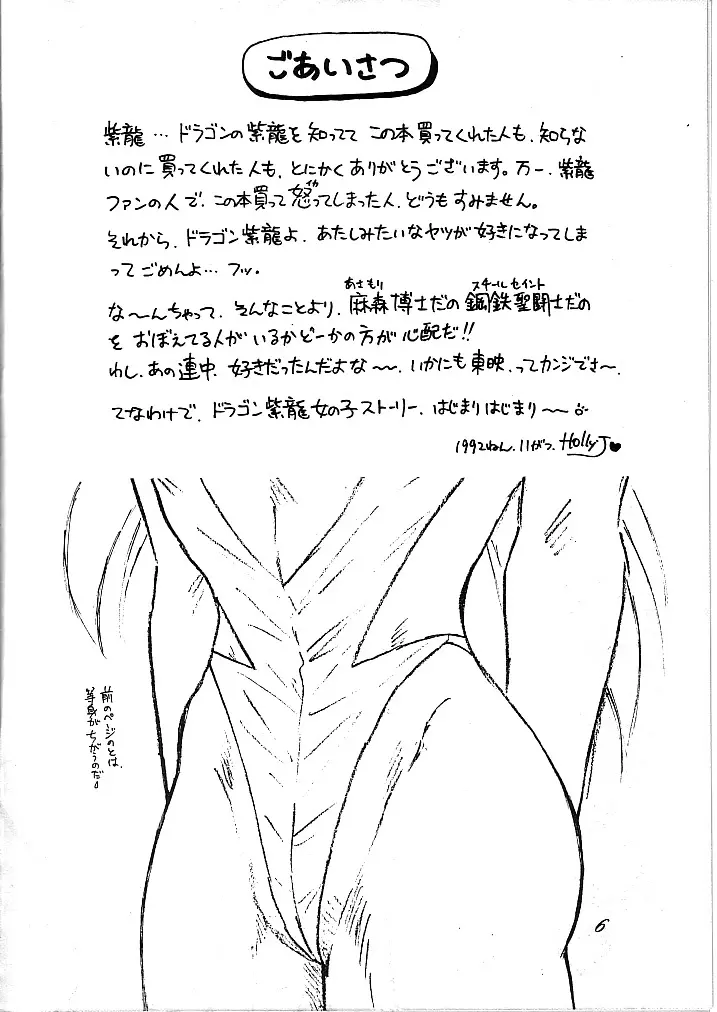 ごあいさつ
紫龍…ドラゴンの紫龍を知ってて この本買ってくれた人も、知らな
いのに買ってくれた人も、とにかくありがとうございます。万一、紫龍
ファンの人で、この本買って怒ってしまった人、どうもすみません。
それから、ドラゴン紫龍よ、あたしみたいなヤツが好きになってしま
ってごめんよ…フッ。
あさもり スチールセイント
な〜んちゃって、そんなことより、麻森博士だの鋼鉄聖闘士だの
を おぼえてる人が いるかどーかの方が心配だ!!
わし、あの連中、好きだったんだよな〜、いかにも東映、ってカンジでさ〜、
てなわけで、ドラゴン紫龍女の子ストーリー、はじまりはじまり〜
1992ねん、11がつ、Holly J♥
前のページのとは、
等身がちがうのだ。
6